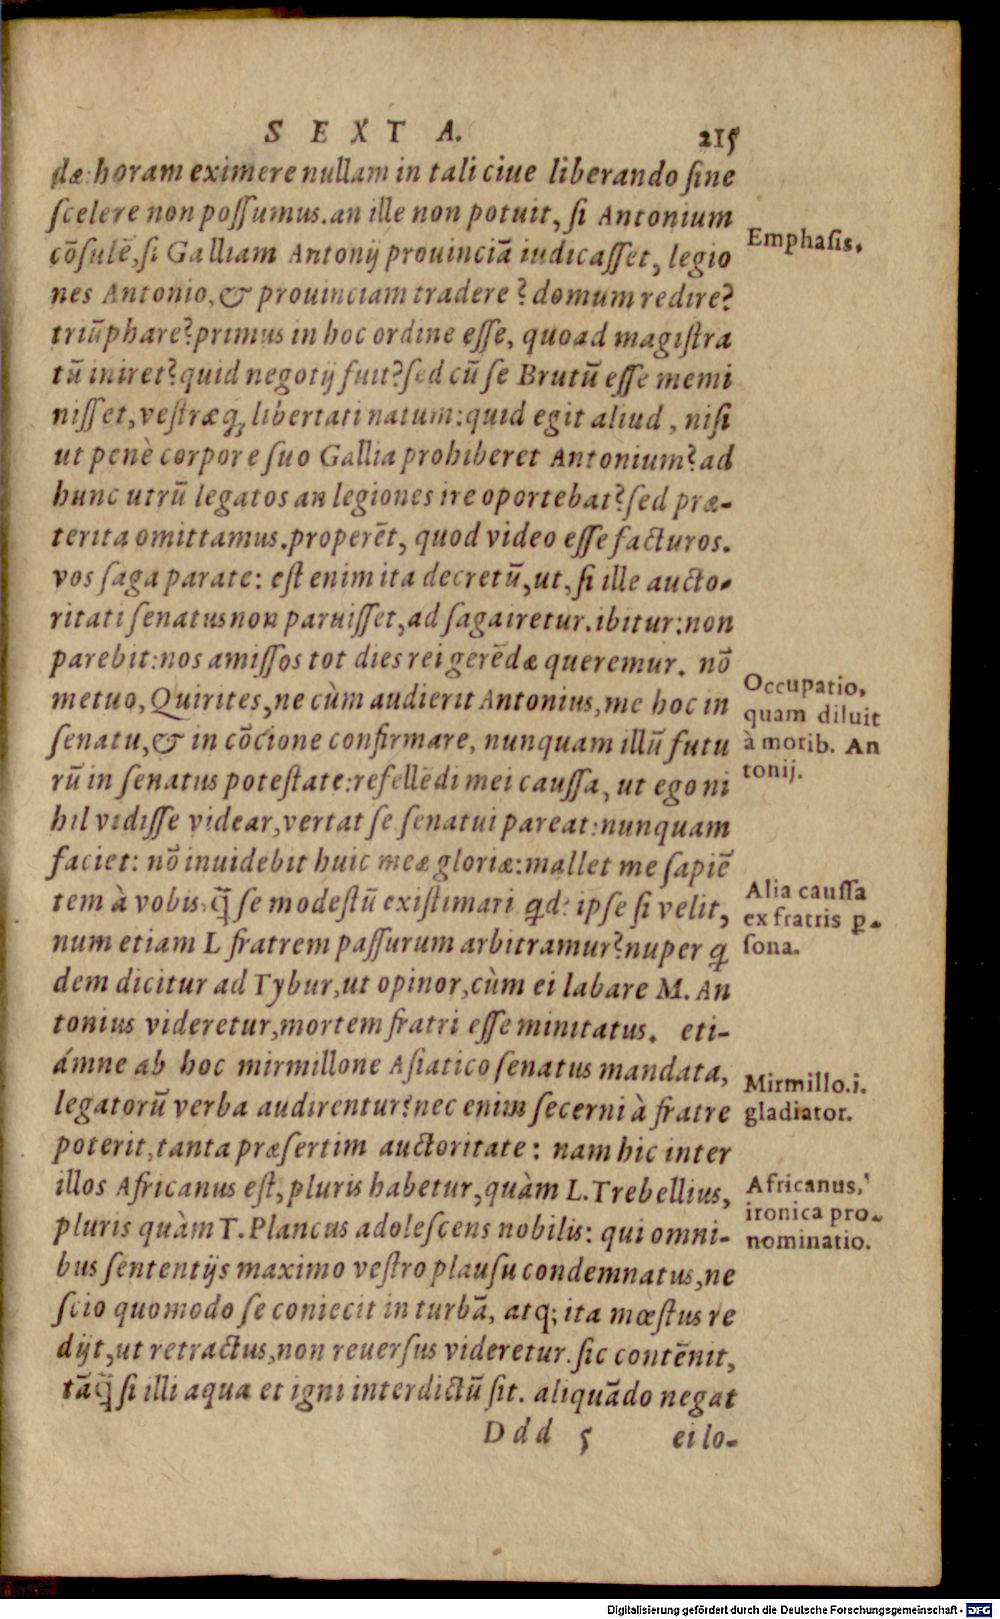 S E X T A. 215
dæ: horam eximere nullam in tali ciue liberando ſine
ſcelere non poſſumus. an ille non potuit, ſi Antonium
cōſulē, ſi Galliam Antonij prouinciā iudicaſſet, legio
nes Antonio, & prouinciam tradere? domum redire?
triūphare? primus in hoc ordine eſſe, quoad magiſtra
tū iniret? quid negotij fuit? ſed cū ſe Brutū eſſe memi
niſſet, veſtræq; libertati natum: quid egit aliud, niſi
ut penè corpore ſuo Gallia prohiberet Antonium? ad
hunc utrū legatos an legiones ire oportebat? ſed præ-
terita omittamus. properēt, quod video eſſe facturos.
vos ſaga parate: eſt enim ita decretū, ut, ſi ille aucto-
ritati ſenatus non paruiſſet, ad ſaga iretur. ibitur: non
parebit: nos amiſſos tot dies rei gerēdæ queremur. nō
metuo, Quirites, ne cùm audierit Antonius, me hoc in
ſenatu, & in cōcione confirmare, nunquam illū futu
rū in ſenatus poteſtate: refellēdi mei cauſſa, ut ego ni
hil vidiſſe videar, vertat ſe ſenatui pareat: nunquam
faciet: nō inuidebit huic meæ gloriæ: mallet me ſapiē
tem à vobis, q̃̃ ſe modeſtū exiſtimari qd? ipſe ſi velit,
num etiam L fratrem paſſurum arbitramur? nuper q
dem dicitur ad Tybur, ut opinor, cùm ei labare M. An
tonius videretur, mortem fratri eſſe minitatus. eti-
ámne ab hoc mirmillone Aſiatico ſenatus mandata,
legatorū verba audirentur? nec enim ſecerni à fratre
poterit, tanta præſertim auctoritate: nam hic inter
illos Africanus eſt, pluris habetur, quàm L. Trebellius,
pluris quàm T. Plancus adoleſcens nobilis: qui omni-
bus ſententijs maximo veſtro plauſu condemnatus, ne
ſcio quomodo ſe coniecit in turbā, atq; ita mœſtus re
dijt, ut retractus, non reuerſus videretur. ſic contēnit,
tāq̃̃ ſi illi aqua et igni interdictū ſit. aliquādo negat
D d d 5 ei lo-
Emphaſis.
Occupatio,
quam diluit
à morib. An
tonij.
Alia cauſſa
ex fratris ꝑ-
ſona.
Mirmillo. i.
gladiator.
Africanus,
ironica pro-
nominatio.
Digitalisierung gefördert durch die Deutsche Forschungsgemeinschaft - DFG